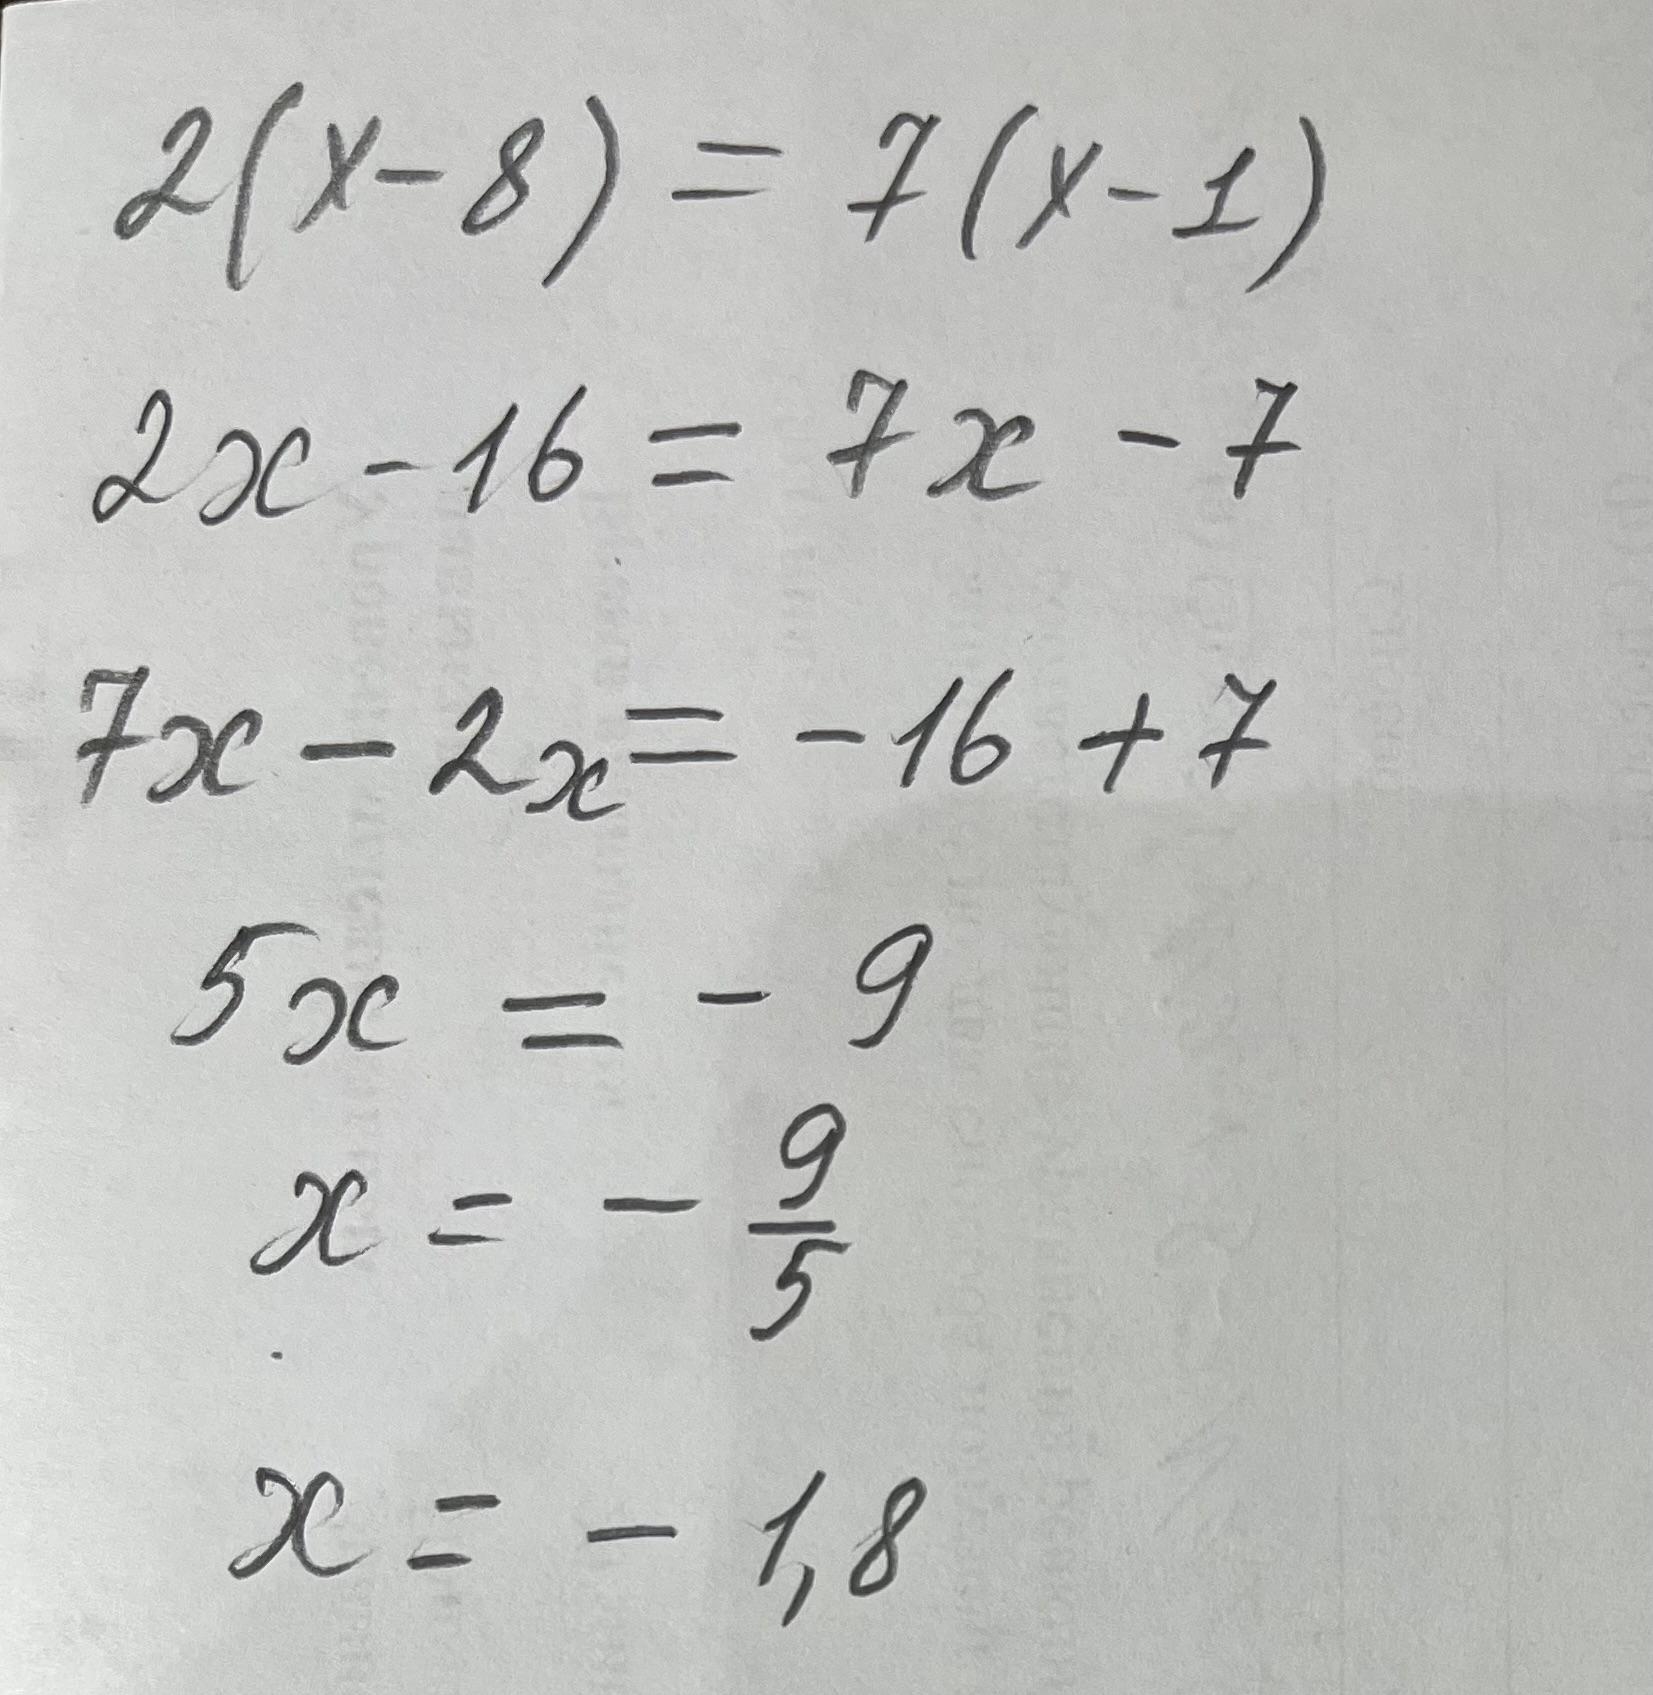 2(x-8) = 7(x-1)
2x - 16 = 7x - 7
7x - 2x = -16 + 7
5x = - 9
x = - 9/5
x = - 1,8